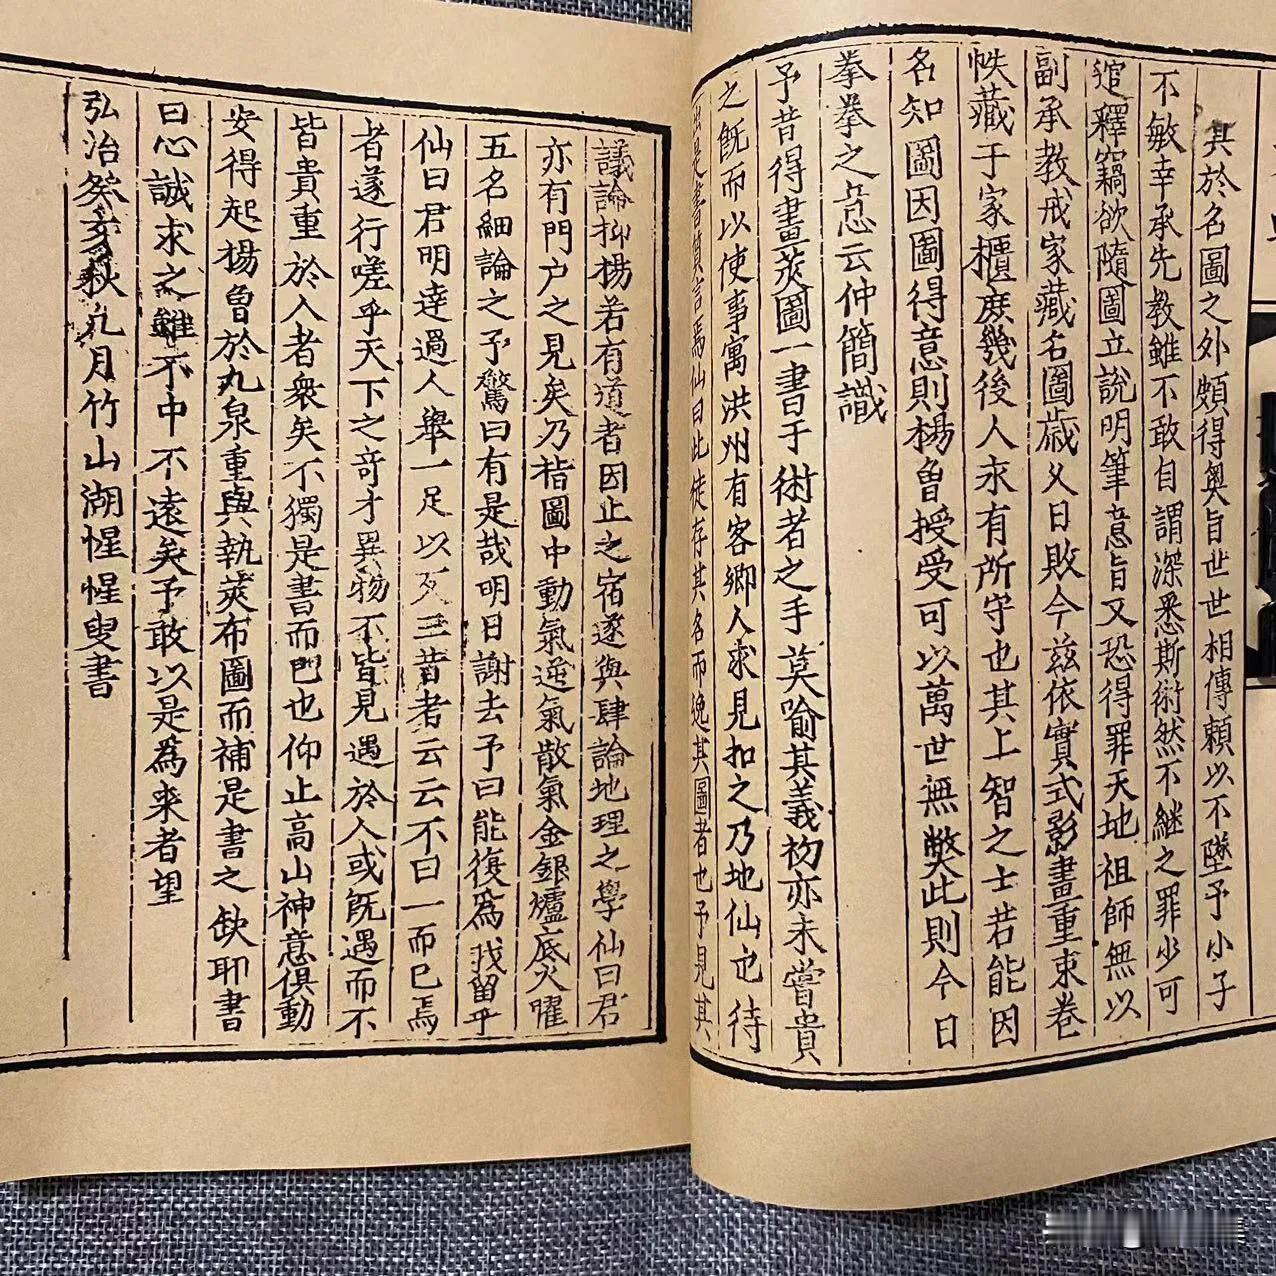 其於名圖之外頗得奥旨世世相傳賴以不墜予小子
不敏幸承先教雖不敢自謂深悉斯術然不継之罪少可
逭釋竊欲隨圖立說明筆意旨又恐得罪天地祖師無以
副承教戒家藏名圖歲久日敗今兹依實式影畫重柬卷
帙藏于家櫃庶幾後人求有所守也其上智之士若能因
名知圖因圖得意則楊曾授受可以萬世無弊此則今日
拳拳之意云仲簡識
予昔得畫莢圖一書于術者之手莫喻其義初亦未嘗貴
之既而以使事寓洪州有客鄉人求見扣之乃地仙也待
是書質言焉仙曰此徒存其名而逸其圖者也予見其
議論抑揚若有道者因止之宿遂與肆論地理之學仙曰君
亦有門户之見矣乃楷圖中動氣逆氣散氣金銀爐底火曜
五名細論之予驚曰有是哉明日謝去予曰能復為我留乎
仙曰君明達過人舉一足以反三昔者云云不曰一而已焉
者遂行嗟乎天下之奇才異物不皆見遇於人或既遇而不
皆貴重於人者衆矣不獨是書而已也仰止高山神意俱動
安得起楊曾於九泉重與執莢布圖而補是書之缺耶書
曰心誠求之雖不中不遠矣予敢以是為来者望
弘治癸亥秋九月竹山湖惺惺叟書